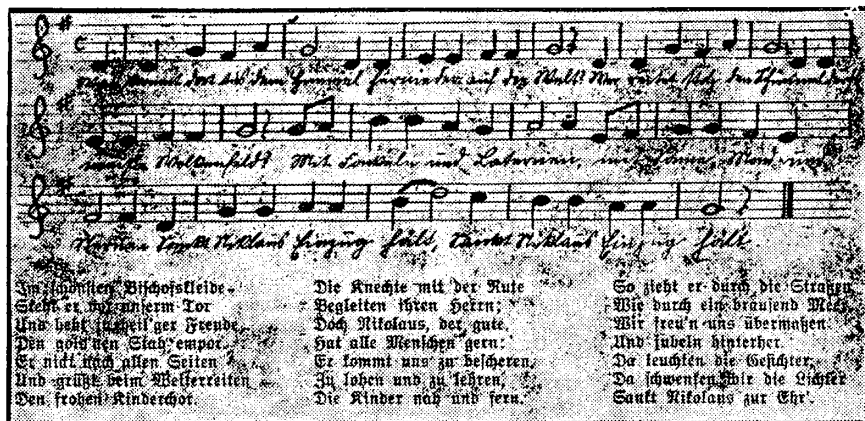 kommt dort aus dem Himmel hernieder auf die Welt? Wer reitet stolz den Schimmel
Wolkenfeld? Mit Fackeln und Laternen, mit Sonne, Mond und
Sternen Sankt Niklaus Einzug hält, Sankt Niklaus Einzug hält.
Im schönsten Bischofskleide
Steht er vor unserm Tor
Und hebt in heil'ger Freude
Den gold'nen Stab empor.
Er nickt nach allen Seiten
Und grüßt beim Weiterreiten
Den frohen Kinderchor.
Die Knechte mit der Rute
Begleiten ihren Herrn;
Doch Nikolaus, der gute,
Hat alle Menschen gern;
Er kommt uns zu bescheren,
Zu loben und zu lehren,
Die Kinder nah und fern.
So zieht er durch die Straßen
Wie durch ein brausend Meer
Wir freu'n uns übermaßen
Und jubeln hinterher.
Da leuchten die Gesichter,
Da schwenken wir die Lichter
Sankt Nikolaus zur Ehr'.